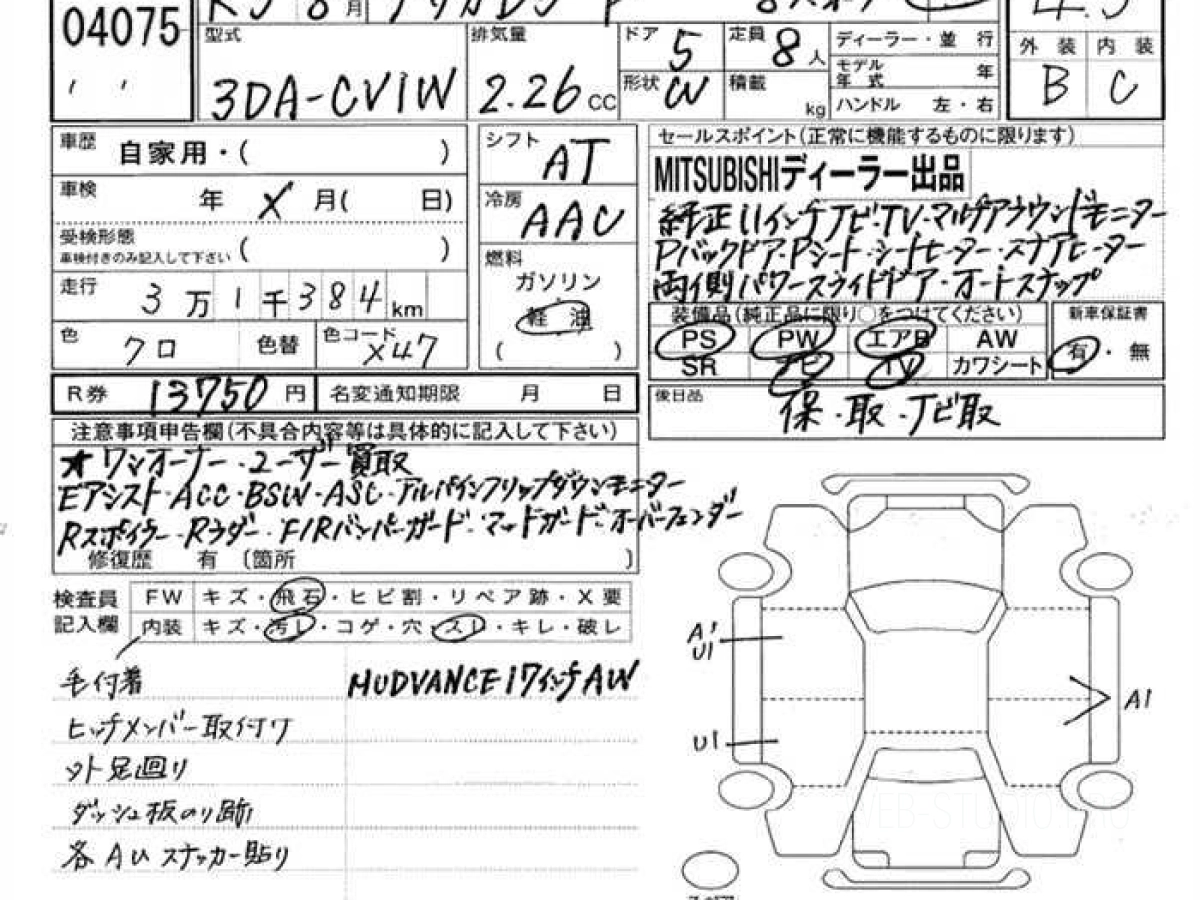 04075
8月
型式
3DA-CV1W
排気量
2.26 CC
ドア 5
定員 8 人
形状 W
積載 kg
ディーラー・並行
モデル年式 年
ハンドル 左・右
外装 内装
B C
車歴 自家用・( )
車検 年 X 月( 日)
受検形態
車検付きのみ記入して下さい ( )
走行 3万1千384km
色 クロ 色替 色コード X47
シフト AT
冷房 AAC
燃料
ガソリン
軽油
( )
セールスポイント(正常に機能するものに限ります)
MITSUBISHIディーラー出品
純正11インチナビ・TV・マルチアラウンドモニター
Pバックドア・Pシート・シートヒーター・ステアヒーター
両側パワースライドドア・オートステップ
装備品(純正品に限り○をつけてください)
PS PW エアB AW
SR ナビ TV カワシート
新車保証書
有・無
R券 13750 円 名変通知期限 月 日
後日品 保・取・ナビ取
注意事項申告欄(不具合内容等は具体的に記入して下さい)
★ワンオーナー・ユーザー買取
Eアシスト・ACC・BSW・ASC・アルパインフリップダウンモニター
Rスポイラー・Rラダー・F/Rバンパーガード・マッドガード・オーバーフェンダー
修復歴 有 〔箇所 〕
検査員記入欄
FW キズ・飛石・ヒビ割・リペア跡・X要
内装 キズ・汚レ・コゲ・穴・スレ・キレ・破レ
毛付着
HUDVANCE17インチAW
ヒッチメンバー取付ケ
外足廻り
ダッシュ板のり跡
各AUステッカー貼り
A1
U1
U1
A1